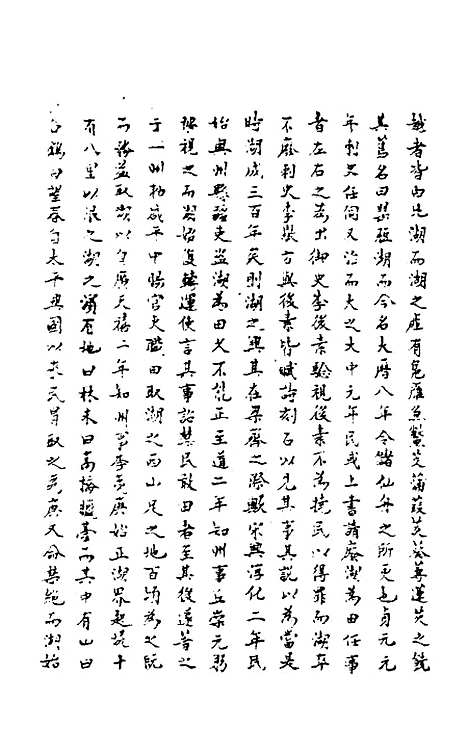 越者皆由此湖而湖之產有鳧雁魚鱉茭蒲葭菼葵蓴蓮芡之饒
其舊名曰罌脰湖而今名大曆八年令儲仙舟之所更也貞元元
年刺史任侗又治而大之大中元年民或上書請廢湖為田任事
者左右之為出御史李後素驗視後素不為撓民以得罪而湖卒
不廢刺史李敬方與後素皆賦詩刻石以見其事其說以為當是
時湖成三百年矣則湖之興其在梁齊之際歟宋興淳化二年民
始與州縣彊吏盜湖為田久不能正至道二年知州事丘崇元躬
按視之而湖始復轉運使言其事詔禁民敢田者至其後遂著之
于一州勅咸平中賜官吏職田取湖之西山足之地百頃為之既
而務益取湖以自廣天禧二年知州事李夷庚始正湖界起堤十
有八里以限之湖之濱有地曰林末曰高橋臘臺而其中有山曰
白鶴曰望春自太平興國以來民冒取之夷庚又命禁絕而湖始